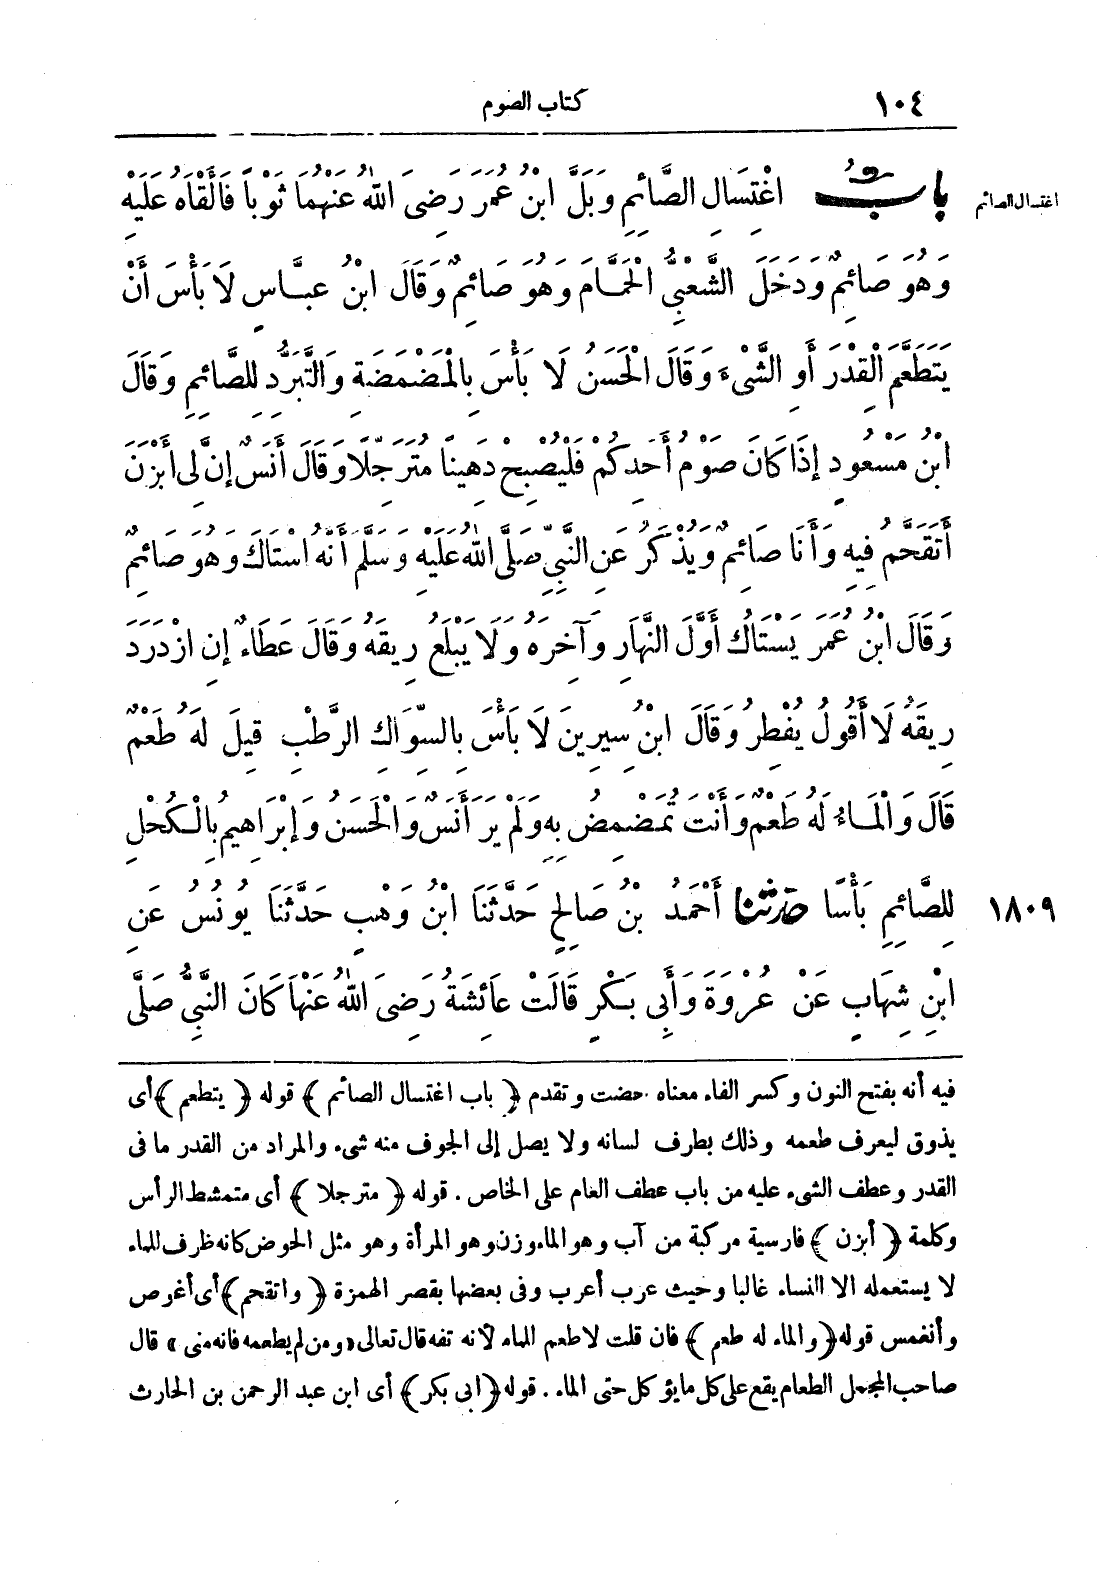 ١٠٤ كتاب الصوم
اغتسال الصائم
بابُ اغْتِسَالِ الصَّائِمِ وَبَلَّ ابْنُ عُمَرَ رَضِىَ اللهُ عَنْهُمَا ثَوْباً فَأَلْقَاهُ عَلَيْهِ
وَهُوَ صَائِمٌ وَدَخَلَ الشَّعْبِىُّ الْحَمَّامَ وَهُوَ صَائِمٌ وَقَالَ ابْنُ عَبَّاسٍ لَا بَأْسَ أَنْ
يَتَطَعَّمَ الْقِدْرَ أَوِ الشَّىْءَ وَقَالَ الْحَسَنُ لَا بَأْسَ بِالْمَضْمَضَةِ وَالتَّبَرُّدِ لِلصَّائِمِ وَقَالَ
ابْنُ مَسْعُودٍ إِذَا كَانَ صَوْمُ أَحَدِكُمْ فَلْيُصْبِحْ دَهِيناً مُتَرَجِّلًا وَقَالَ أَنَسٌ إِنَّ لِى أَبْزَنَ
أَتَقَحَّمُ فِيهِ وَأَنَا صَائِمٌ وَيُذْكَرُ عَنِ النَّبِىِّ صَلَّى اللهُ عَلَيْهِ وَسَلَّمَ أَنَّهُ اسْتَاكَ وَهُوَ صَائِمٌ
وَقَالَ ابْنُ عُمَرَ يَسْتَاكُ أَوَّلَ النَّهَارِ وَآخِرَهُ وَلَا يَبْلَعُ رِيقَهُ وَقَالَ عَطَاءٌ إِنِ ازْدَرَدَ
رِيقَهُ لَا أَقُولُ يُفْطِرُ وَقَالَ ابْنُ سِيرِينَ لَا بَأْسَ بِالسِّوَاكِ الرَّطْبِ قِيلَ لَهُ طَعْمٌ
قَالَ وَالْمَاءُ لَهُ طَعْمٌ وَأَنْتَ تُمَضْمِضُ بِهِ وَلَمْ يَرَ أَنَسٌ وَالْحَسَنُ وَإِبْرَاهِيمُ بِالْكُحْلِ
١٨٠٩ لِلصَّائِمِ بَأْسًا حدثنا أَحْمَدُ بْنُ صَالِحٍ حَدَّثَنَا ابْنُ وَهْبٍ حَدَّثَنَا يُونُسُ عَنِ
ابْنِ شِهَابٍ عَنْ عُرْوَةَ وَأَبِى بَكْرٍ قَالَتْ عَائِشَةُ رَضِىَ اللهُ عَنْهَا كَانَ النَّبِىُّ صَلَّى
فيه أنه بفتح النون وكسر الفاء معناه حضت وتقدم ﴿باب اغتسال الصائم﴾ قوله ﴿يتطعم﴾ أى
يذوق ليعرف طعمه وذلك بطرف لسانه ولا يصل إلى الجوف منه شىء والمراد من القدر ما فى
القدر وعطف الشىء عليه من باب عطف العام على الخاص. قوله ﴿مترجلا﴾ أى متمشط الرأس
وكلمة ﴿أبزن﴾ فارسية مركبة من آب وهو الماء وزن وهو المرأة وهو مثل الحوض كانه ظرف للماء
لا يستعمله الا النساء غالبا وحيث عرب أعرب وفى بعضها بقصر الهمزة ﴿واتقحم﴾ أى أغوص
وأنغمس قوله ﴿والماء له طعم﴾ فان قلت لاطعم للماء لأنه تفه قال تعالى «ومن لم يطعمه فانه منى» قال
صاحب المجمل الطعام يقع على كل ما يؤكل حتى الماء. قوله ﴿ابى بكر﴾ أى ابن عبد الرحمن بن الحارث